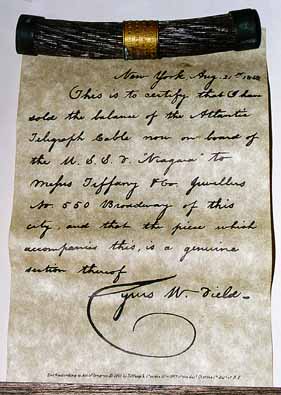 New York, Aug. 21st 1858
This is to certify that I have
sold the balance of the Atlantic
Telegraph Cable now on board of
the U. S. S. F. "Niagara" to
Messrs Tiffany & Co. Jewellers
No. 550 Broadway of this
city, and that the piece which
accompanies this, is a genuine
section thereof
Cyrus W. Field.